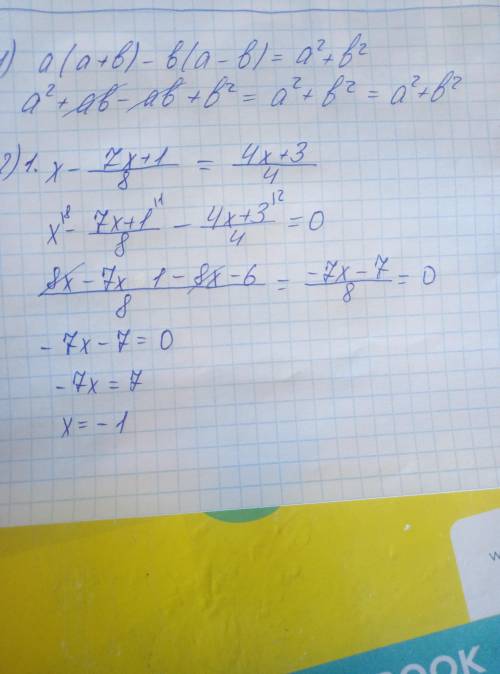 1) a(a+b) - b(a-b) = a² + b²
a² + ab - ab + b² = a² + b² = a² + b²
2) 1. x - \frac{7x+1}{8} = \frac{4x+3}{4}
x^{|8} - \frac{7x+1^{|1}}{8} - \frac{4x+3^{|2}}{4} = 0
\frac{8x - 7x 1 - 8x - 6}{8} = \frac{-7x-7}{8} = 0
- 7x - 7 = 0
- 7x = 7
x = - 1
w
OOK